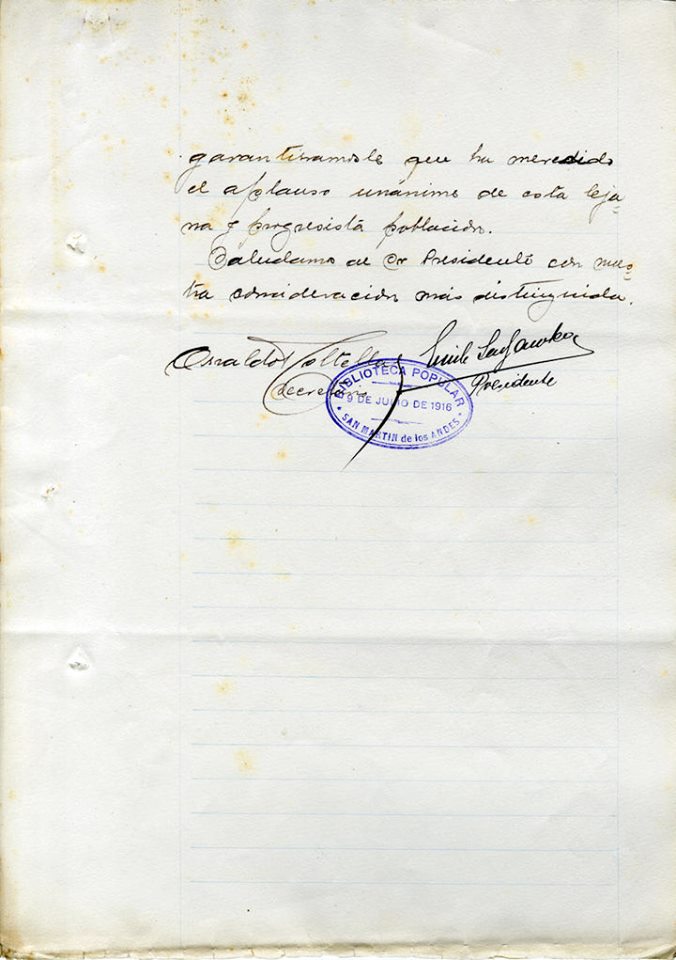 garantizamosle que ha merecido
el aplauso unánime de esta leja-
na y progresista población.
Saludamos al Sr Presidente con nues-
tra consideración más distinguida.
Osvaldo
Secretario
Presidente
BIBLIOTECA POPULAR
9 DE JULIO DE 1916
SAN MARTIN de los ANDES